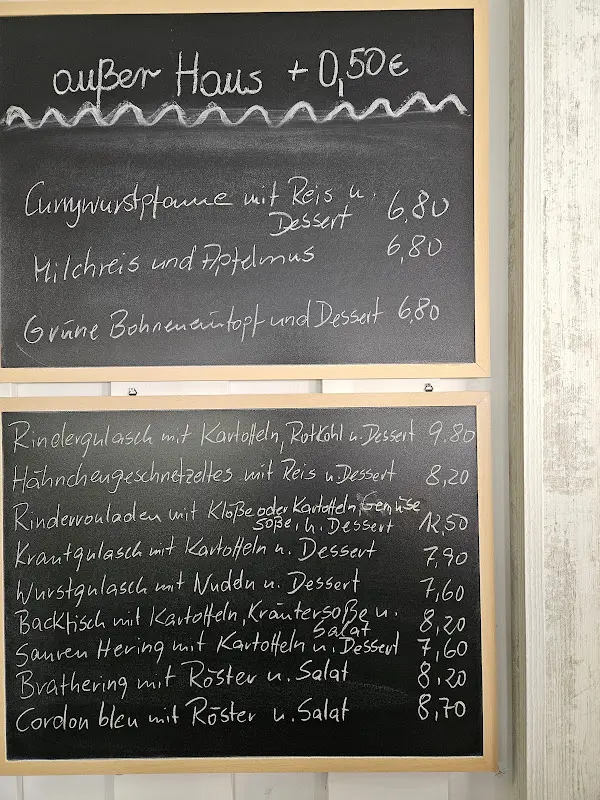 außer Haus + 0,50€
Currywurstpfanne mit Reis u.
Dessert 6,80
Milchreis und Apfelmus 6,80
Grüne Bohneneintopf und Dessert 6,80
Rindergulasch mit Kartoffeln, Rotkohl u. Dessert 9.80
Hähnchengeschnetzeltes mit Reis u. Dessert 8,20
Rinderrouladen mit Klöße oder Kartoffeln, Gemüse
Soße, u. Dessert 12,50
Krautgulasch mit Kartoffeln u. Dessert 7,90
Wurstgulasch mit Nudeln u. Dessert 7,60
Backfisch mit Kartoffeln, Kräutersoße u.
Salat 8,20
Sauren Hering mit Kartoffeln u. Dessert 7,60
Brathering mit Röster u. Salat 8,20
Cordon bleu mit Röster u. Salat 8,70